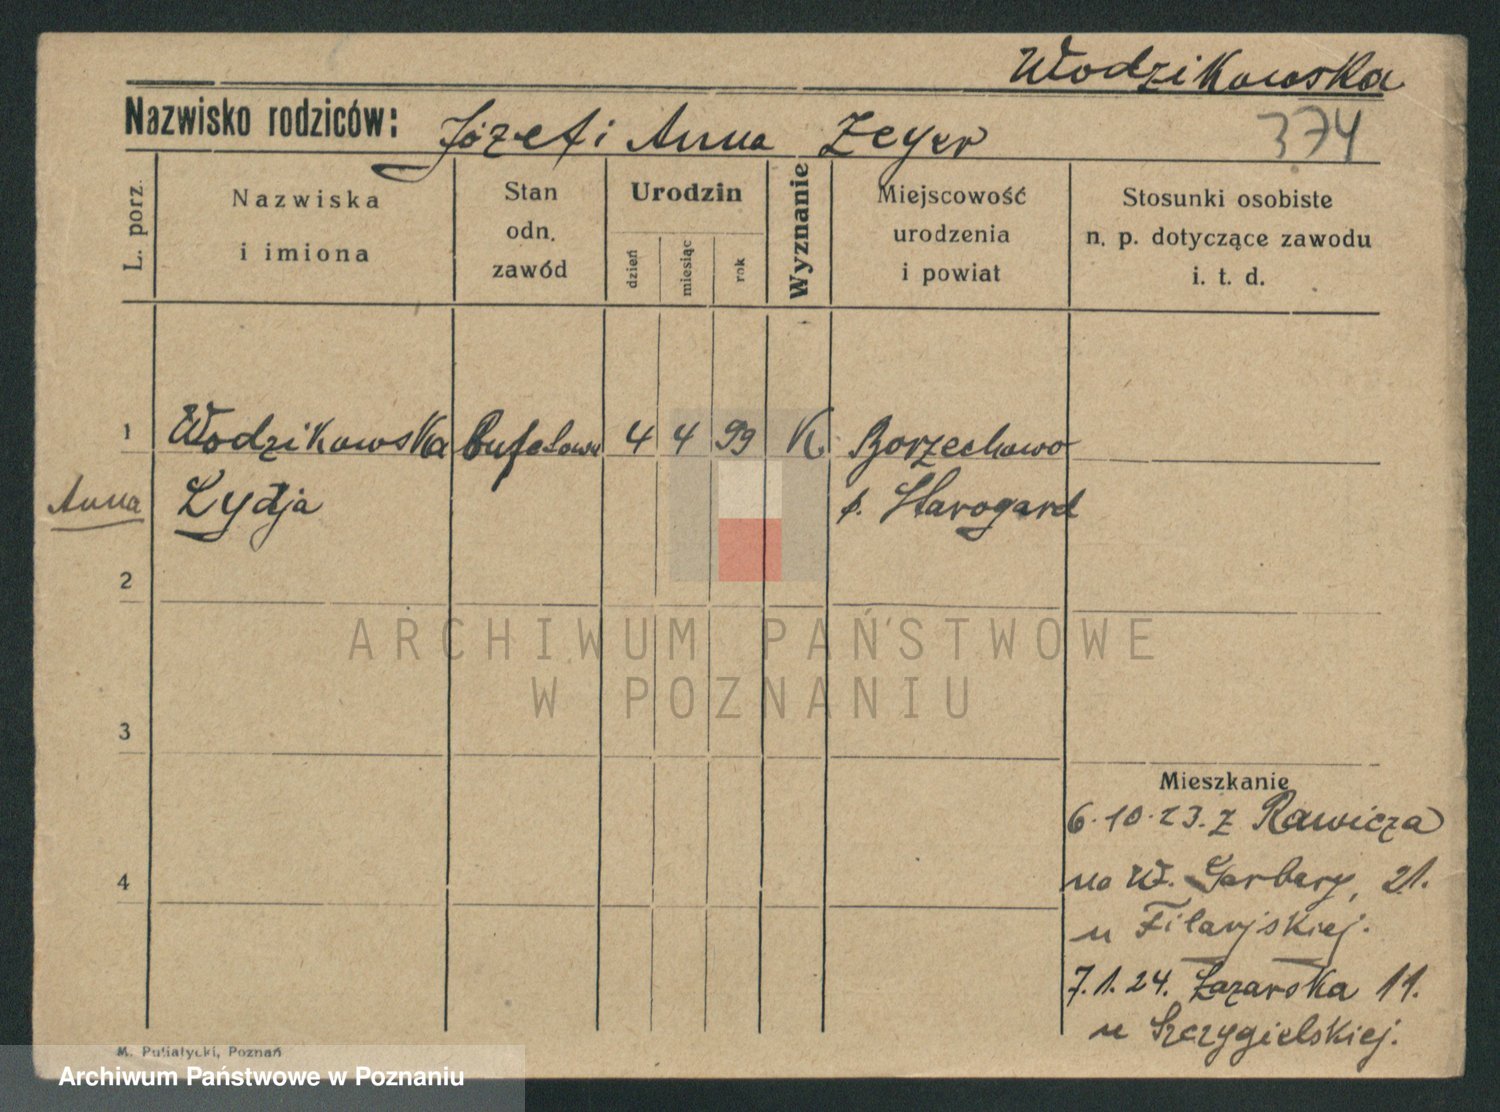 Wodzikowska
Nazwisko rodziców: Józef i Anna Zeyer
374
L. porz.
Nazwiska
i imiona
Stan
odn.
zawód
Urodzin
dzień
miesiąc
rok
Wyznanie
Miejscowość
urodzenia
i powiat
Stosunki osobiste
n. p. dotyczące zawodu
i. t. d.
1 Wodzikowska Bufetowa 4 4 99 K. Borzechowo
Anna Lydja p. Starogard
2
ARCHIWUM PAŃSTWOWE
W POZNANIU
3
Mieszkanie
6.10.23. z Rawicza
na W. Garbary, 21.
4
u Filaryjskiej.
7.1.24. Łazarska 11.
u Szczygielskiej.
M. Putiatycki, Poznań
Archiwum Państwowe w Poznaniu